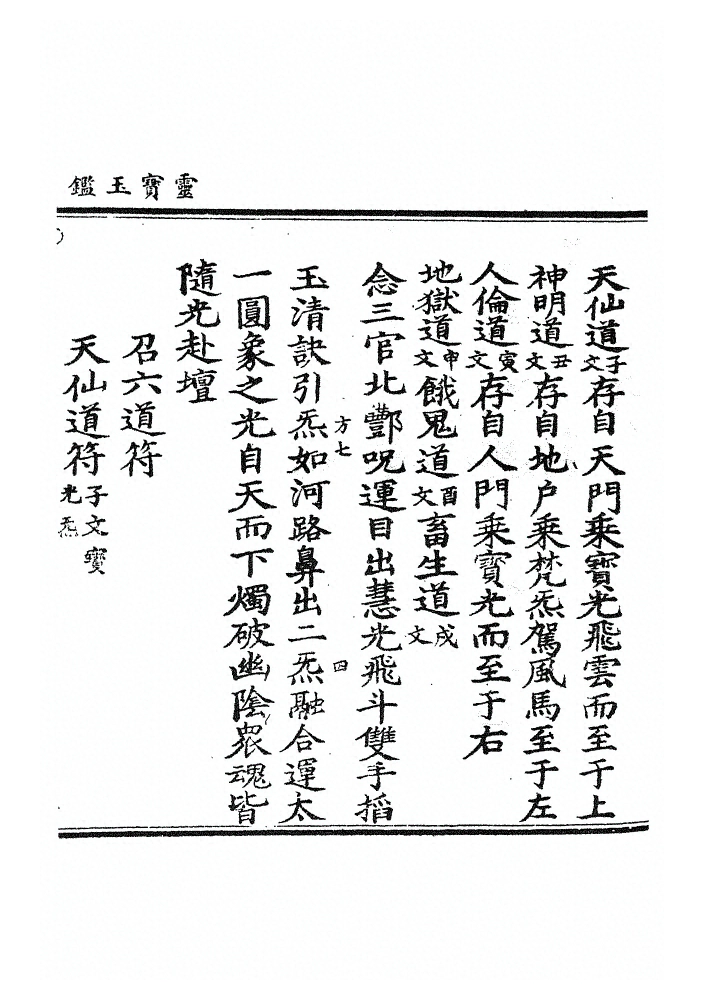 靈寶玉鑑
天仙道子文存自天門乘寶光飛雲而至于上
神明道丑文存自地户乘梵炁駕風馬至于左
人倫道寅文存自人門乘寶光而至于右
地獄道申文餓鬼道酉文畜生道戌文
念三官北酆呪運目出慧光飛斗雙手搯
方七
四
玉清訣引炁如河路鼻出二炁融合運太
一圓象之光自天而下燭破幽陰衆魂皆
隨光赴壇
召六道符
天仙道符子文寶光炁